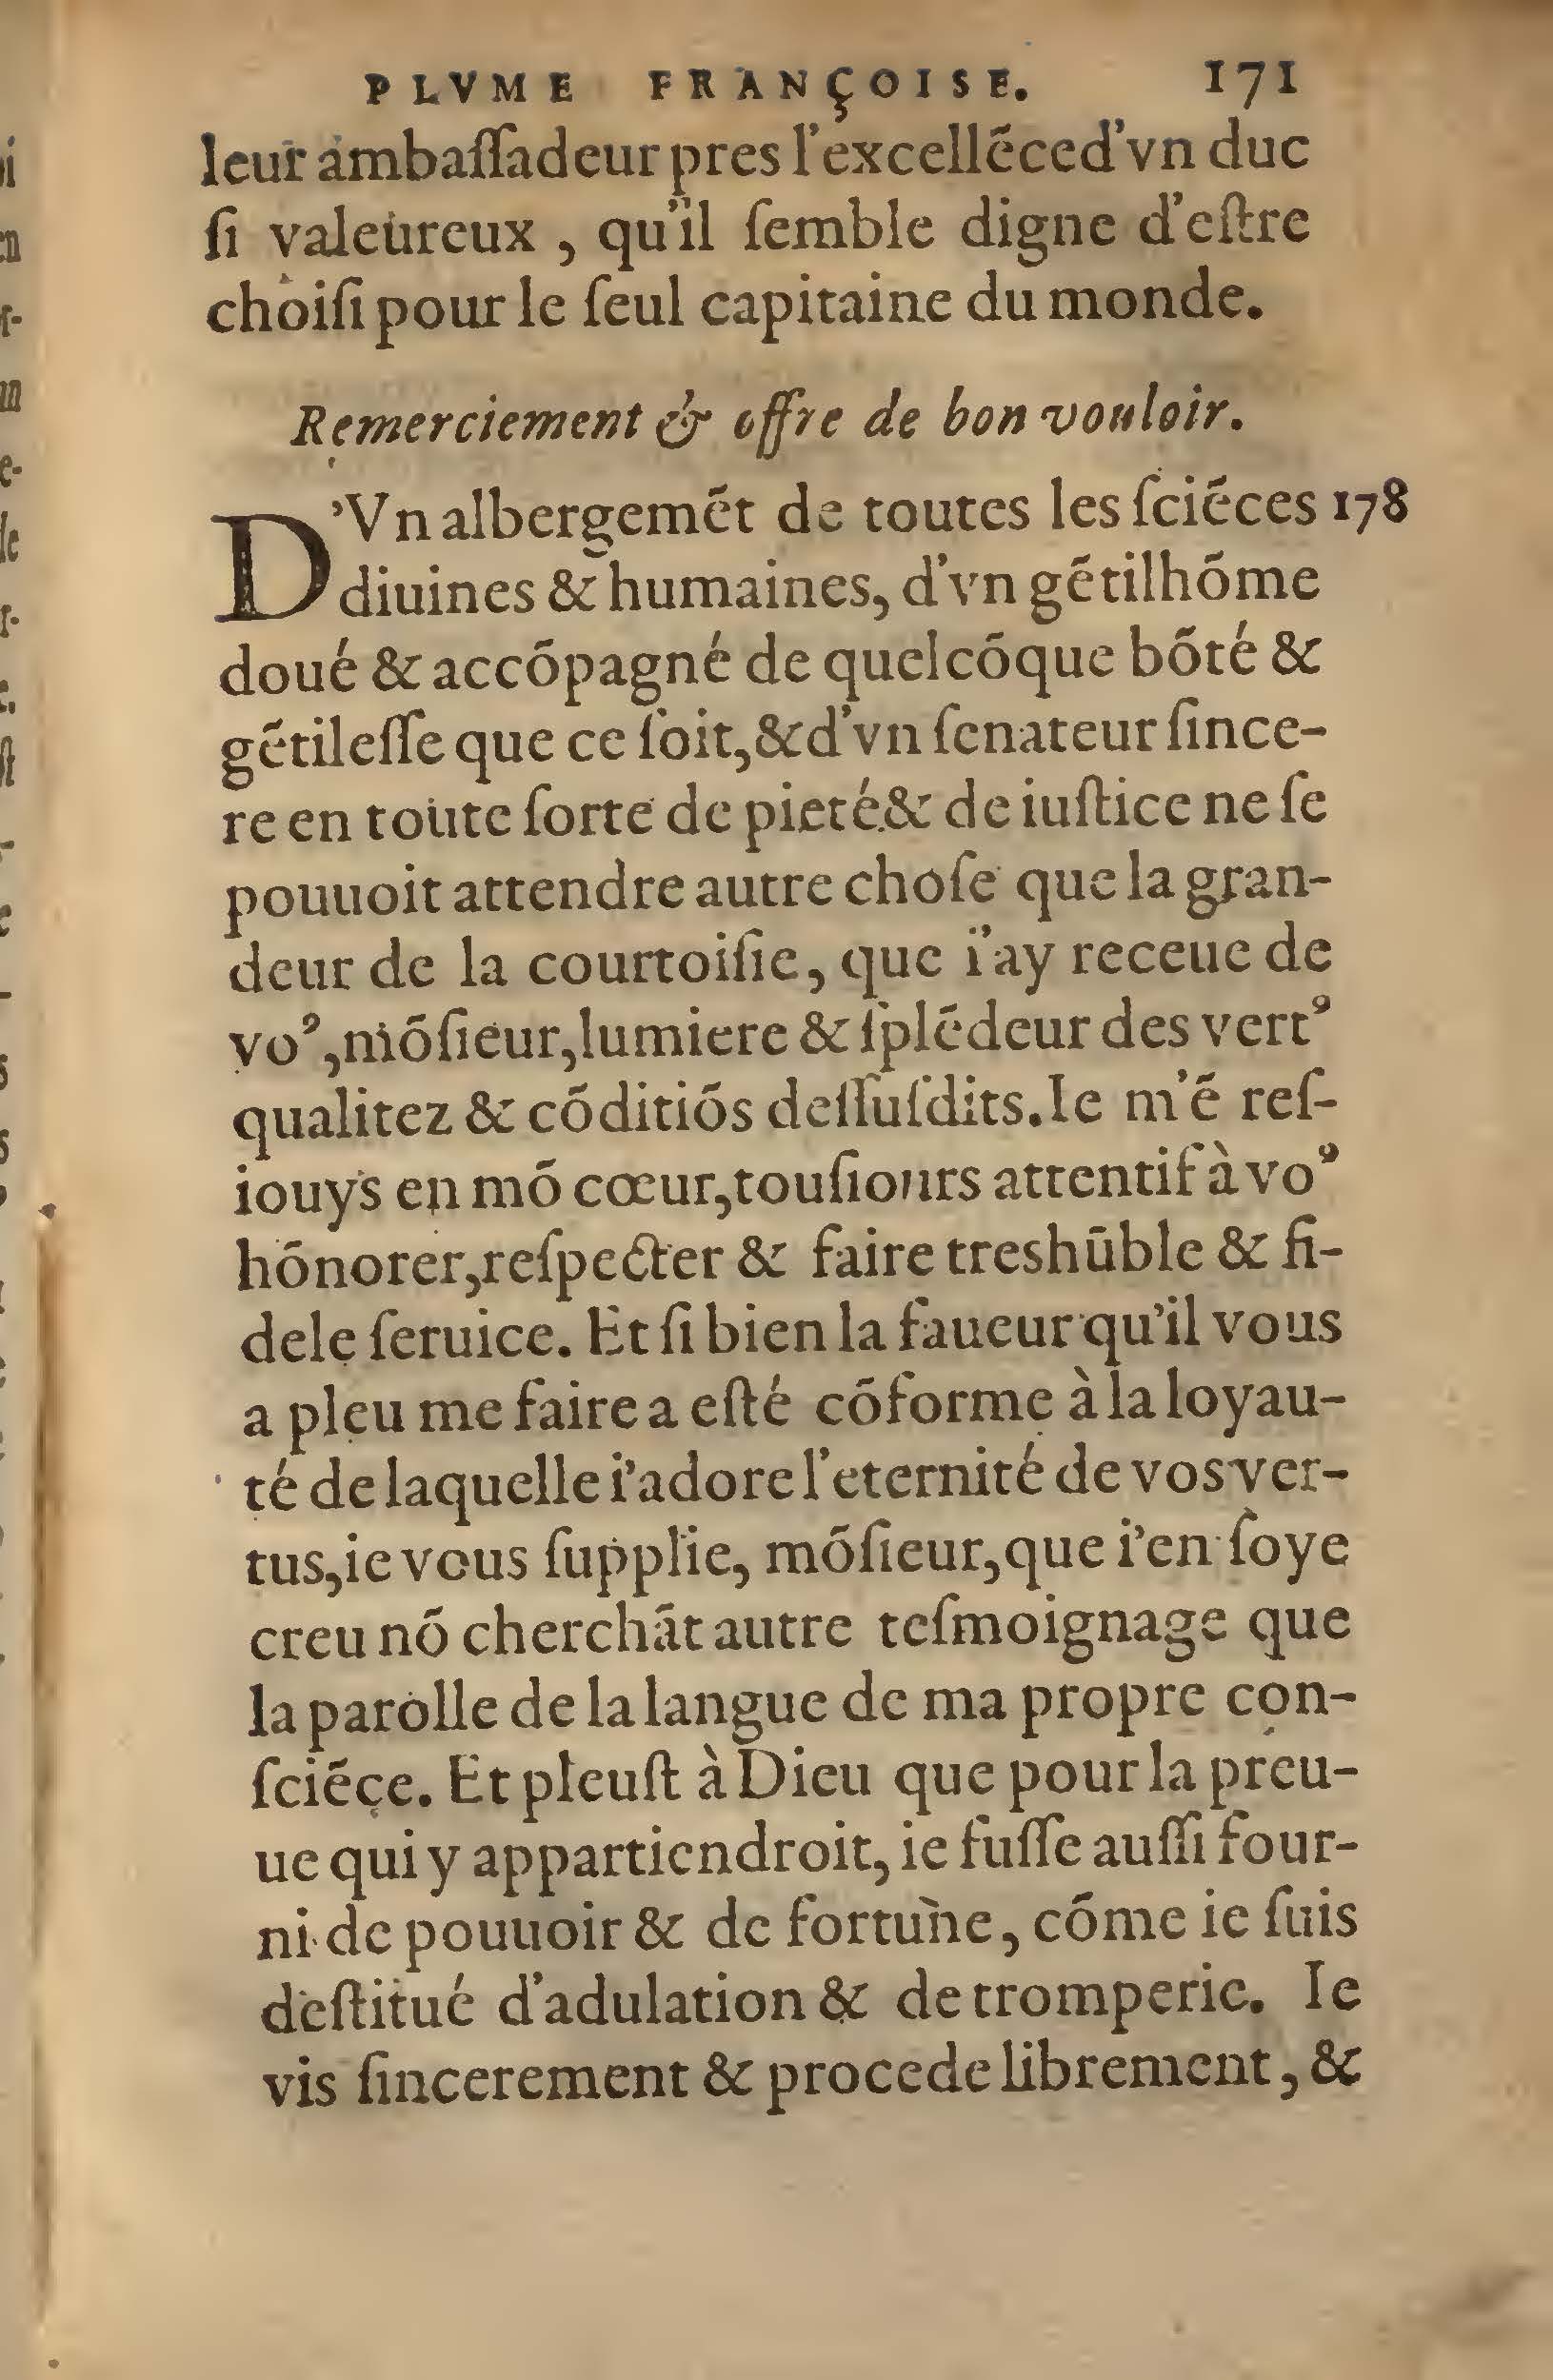 PLVME FRANÇOISE. 171
leur ambaſſadeur pres l'excellẽced'vn duc
ſi valeureux , qu'il ſemble digne d'eſtre
choiſi pour le ſeul capitaine du monde.
Remerciement & offre de bon vouloir.
D'Vn albergemẽt de toutes les ſciẽces 178
diuines & humaines, d'vn gẽtilhõme
doué & accõpagné de quelcõque bõté &
gẽtileſſe que ce ſoit,&d'vn ſenateur ſince-
re en toute ſorte de pieté& de iuſtice ne ſe
pouuoit attendre autre choſe que la gran-
deur de la courtoiſie, que i'ay receue de
voꝰ,mõſieur,lumiere & ſplẽdeur des vertꝰ
qualitez & cõditiõs deſſuſdits.Ie m'ẽ reſ-
iouys en mõ cœur,touſiours attentif à voꝰ
hõnorer,reſpecter & faire treshũble & fi-
dele ſeruice. Et ſi bien la faueur qu'il vous
a pleu me faire a eſté cõforme à la loyau-
té de laquelle i'adore l'eternité de vos ver-
tus,ie vous ſupplie, mõſieur,que i'en ſoye
creu nõ cherchãt autre teſmoignage que
la parolle de la langue de ma propre con-
ſciẽce. Et pleuſt à Dieu que pour la preu-
ue qui y appartiendroit, ie fuſſe auſſi four-
ni de pouuoir & de fortune, cõme ie ſuis
deſtitué d'adulation & de tromperie. Ie
vis ſincerement & procede librement, &